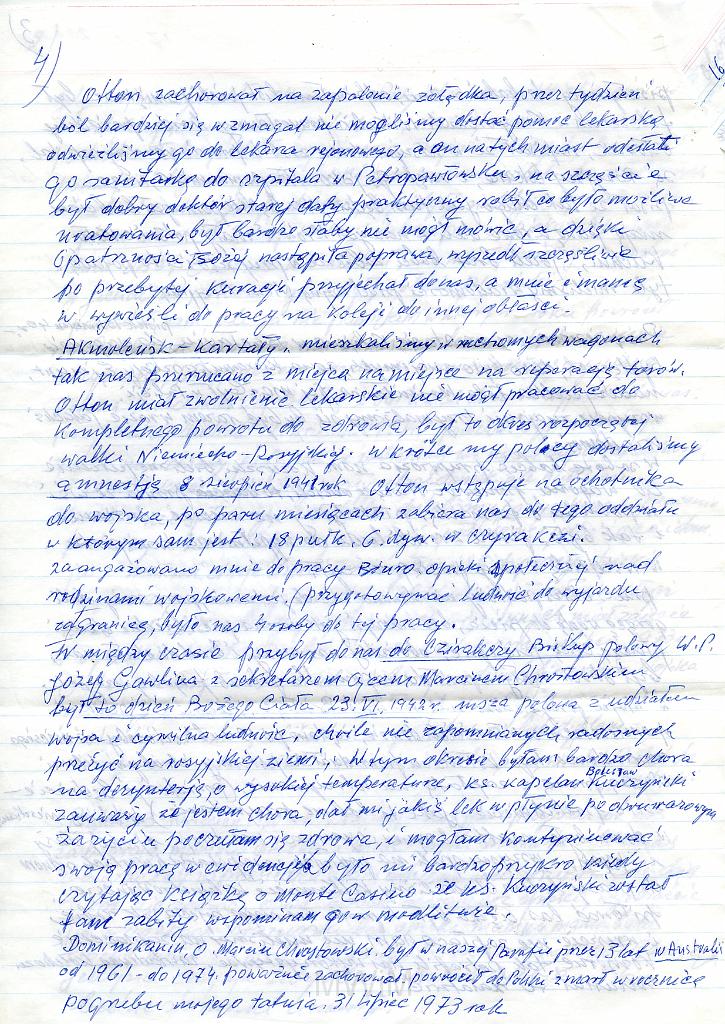 4)
Otton zachorował na zapalenie żołądka, przez tydzień
ból bardziej się wzmagał nie mogliśmy dostać pomoc lekarską
odwieźliśmy go do lekarza rejonowego, a on natychmiast odesłał
go sanitarką do szpitala w Petropawłowsku, na szczęście
był dobry doktór starej daty praktyczny robił co było możliwe
uratowania, był bardzo słaby nie mógł mówić, a dzięki
Opatrzności Bożej nastąpiła poprawa, wyszedł szczęśliwie
po przebytej kuracji przyjechał do nas, a mnie i manią
w. wywieźli do pracy na kolej do innej obłaści.
Akmoleńsk - Kartały, mieszkaliśmy w ruchomych wagonach
tak nas przerzucano z miejsca na miejsce na reperację torów.
Otton miał zwolnienie lekarskie nie mógł pracować do
kompletnego powrotu do zdrowia, był to okres rozpoczętej
walki Niemiecko-Rosyjskiej. w krótce my polacy dostaliśmy
amnestję 8 sierpień 1941 rok Otton wstępuje na ochotnika
do wojska, po paru miesiącach zabiera nas do tego oddziału
w którym sam jest: 18 pułk. 6. dyw. w czyrakczi.
zaangażowano mnie do pracy Biuro opieki społecznej nad
rodzinami wojskowemi. (przygotowywać ludność do wyjazdu
zagranicę, było nas 4 osoby do tej pracy.
W między czasie przybył do nas do Czirakczy Biskup polowy W.P.
Józef Gawlina z sekretarzem Ojcem Marcinem Chrostowskim
był to dzień Bożego Ciała 23. VI. 1942 r. msza polowa z udziałem
wojsa i cywilna ludność, chwile nie zapomnianych radosnych
przeżyć na rosyjskiej ziemi, w tym okresie byłam bardzo chora
na dezynterją o wysokiej temperaturze, ks. kapelan Bolesław Kuczyński
zauważył że jestem chora, dał mi jakiś lek w płynie po dwurazowym
zażyciu poczułam się zdrowa, i mogłam kontynuować
swoją pracę w ewidencji było mi bardzo przykro kiedy
czytając książkę o Monte Casino że ks. Kuczyński został
tam zabity wspominam go w modlitwie.
Dominikanin, o. Marcin Chrostowski, był w naszej Parafii przez 13 lat w Australii
od 1961 - do 1974. poważnie zachorował powrócił do Polski zmarł w rocznicę
pogrzebu mojego tatusia. 31 lipiec 1973 rok